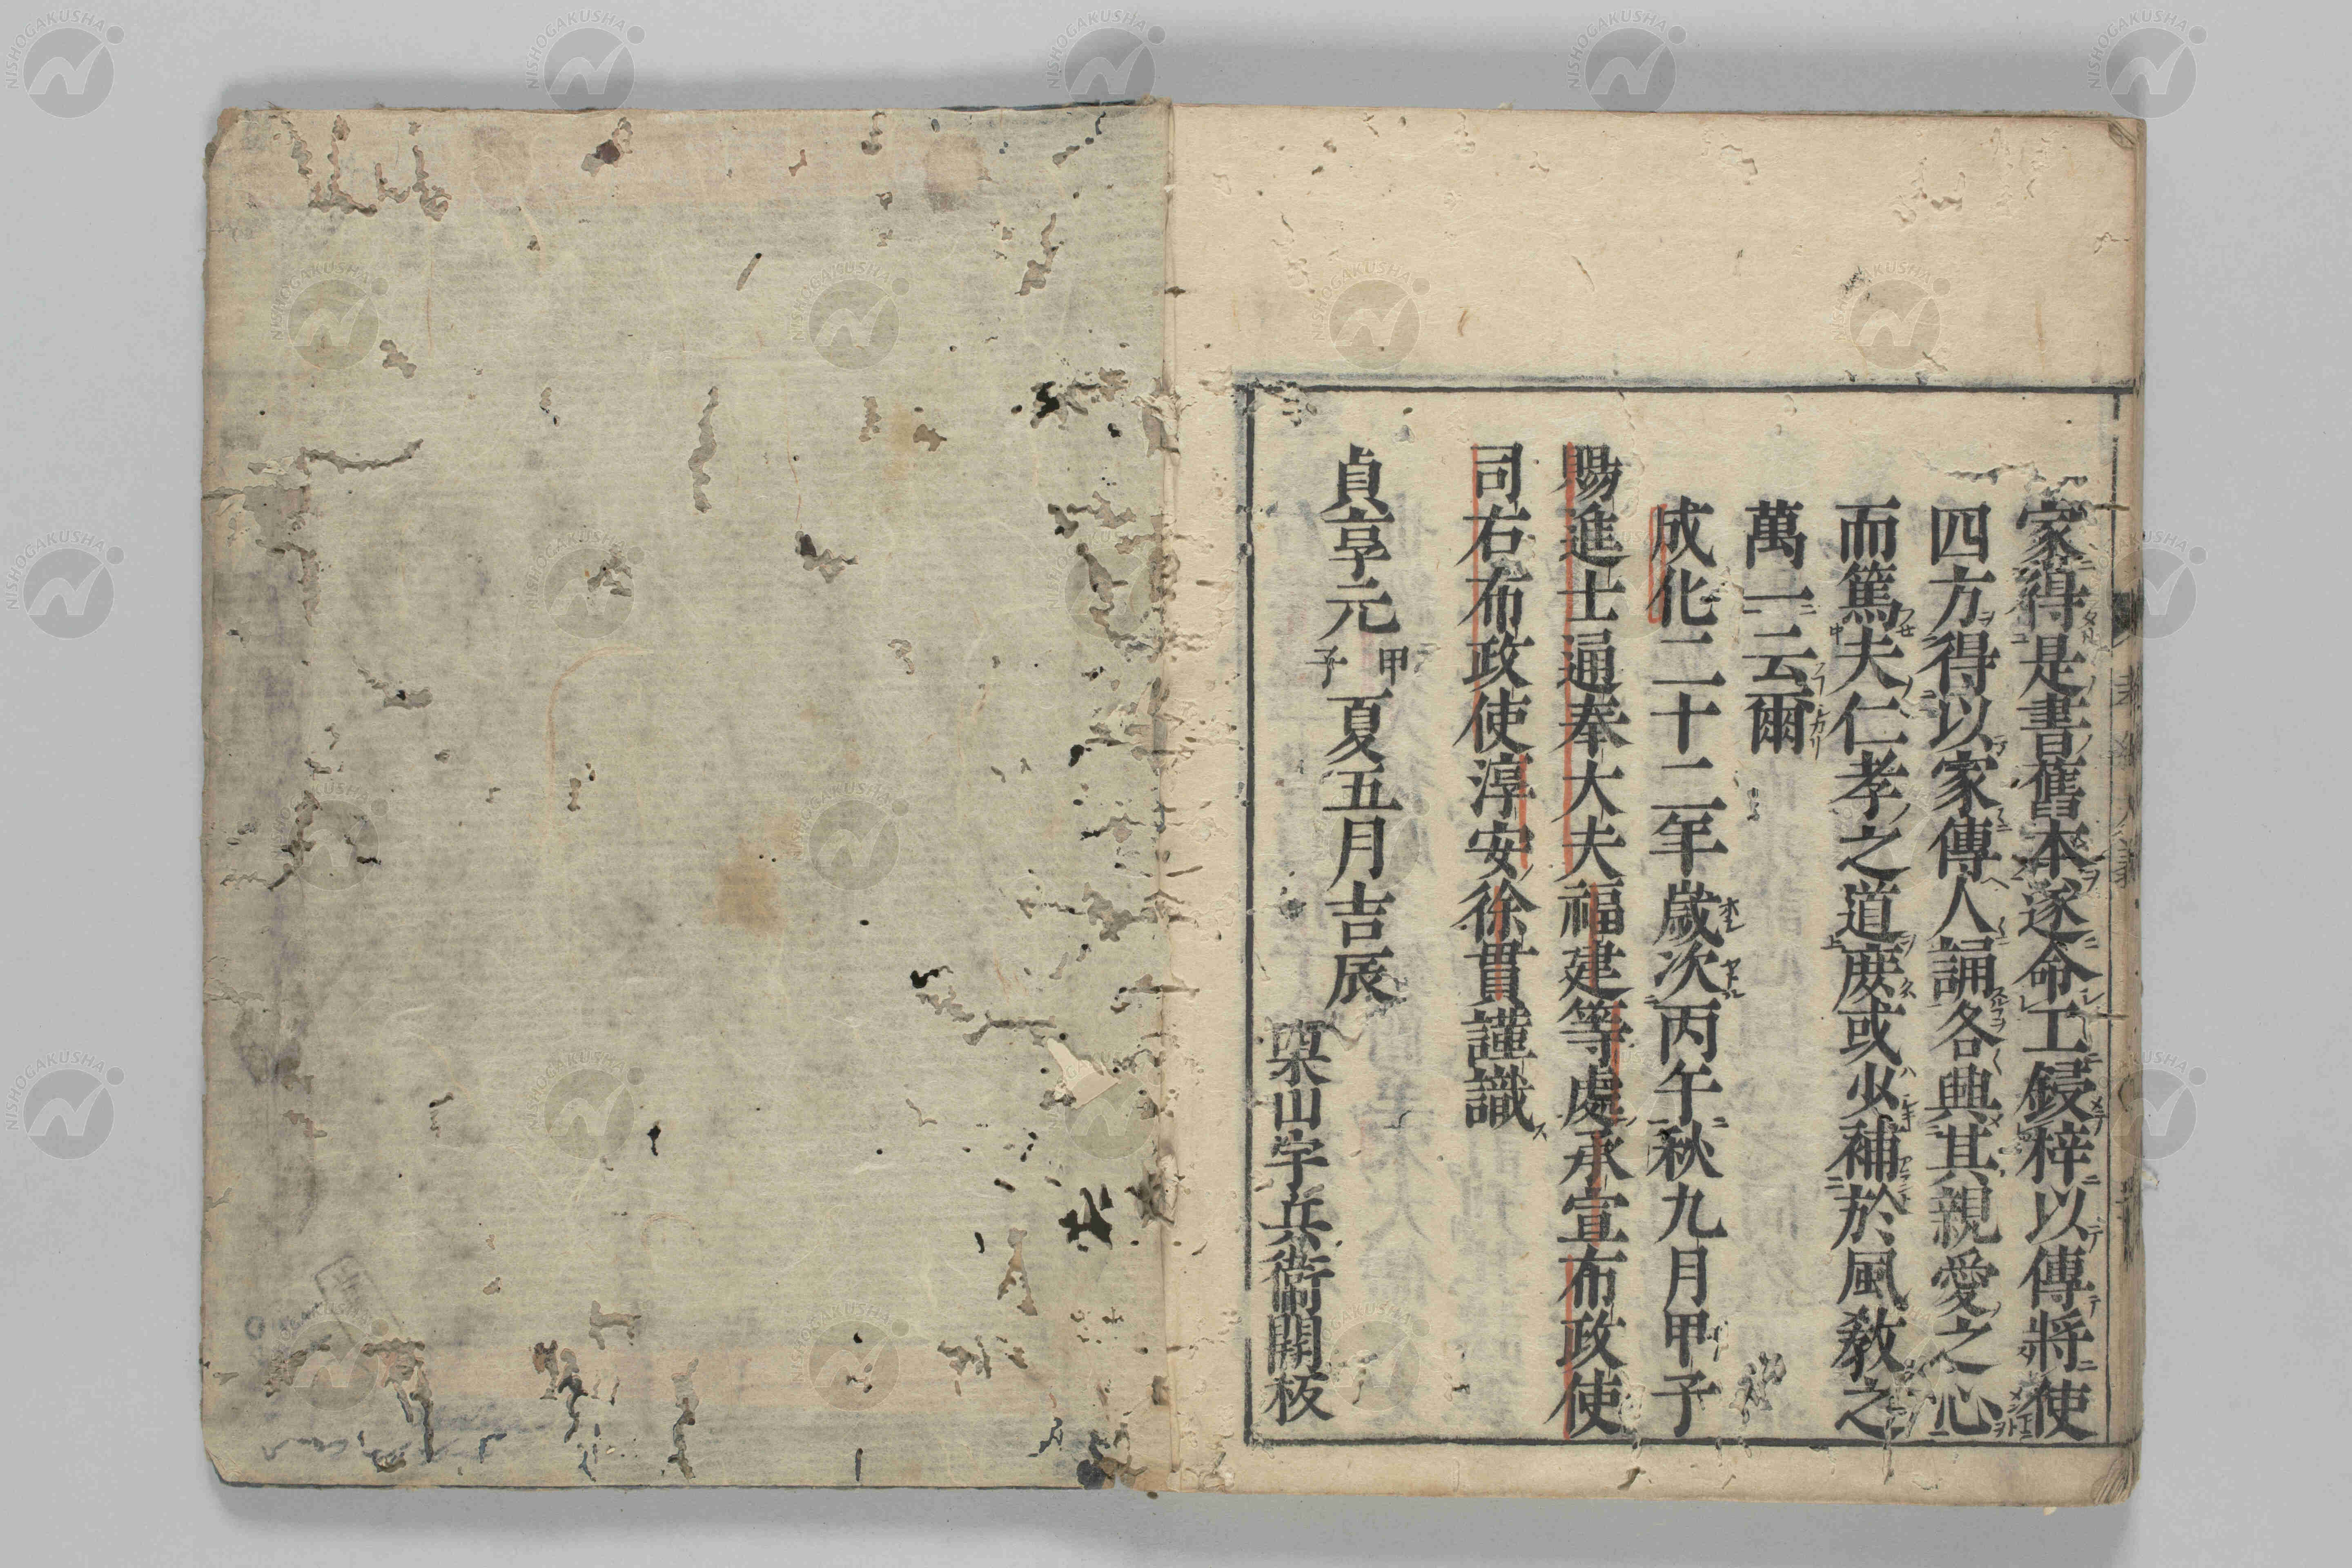 家得是書舊本遂命工鋟梓以傳將使
四方得以家傳人誦各興其親愛之心
而篤夫仁孝之道庶或少補於風敎之
萬一云爾
成化二十二年歲次丙午秋九月甲子
賜進士通奉大夫福建等處承宣布政使
司右布政使淳安徐貫謹識
貞享元甲子夏五月吉辰
梁山宇兵衞開板
NISHOGAKUSHA